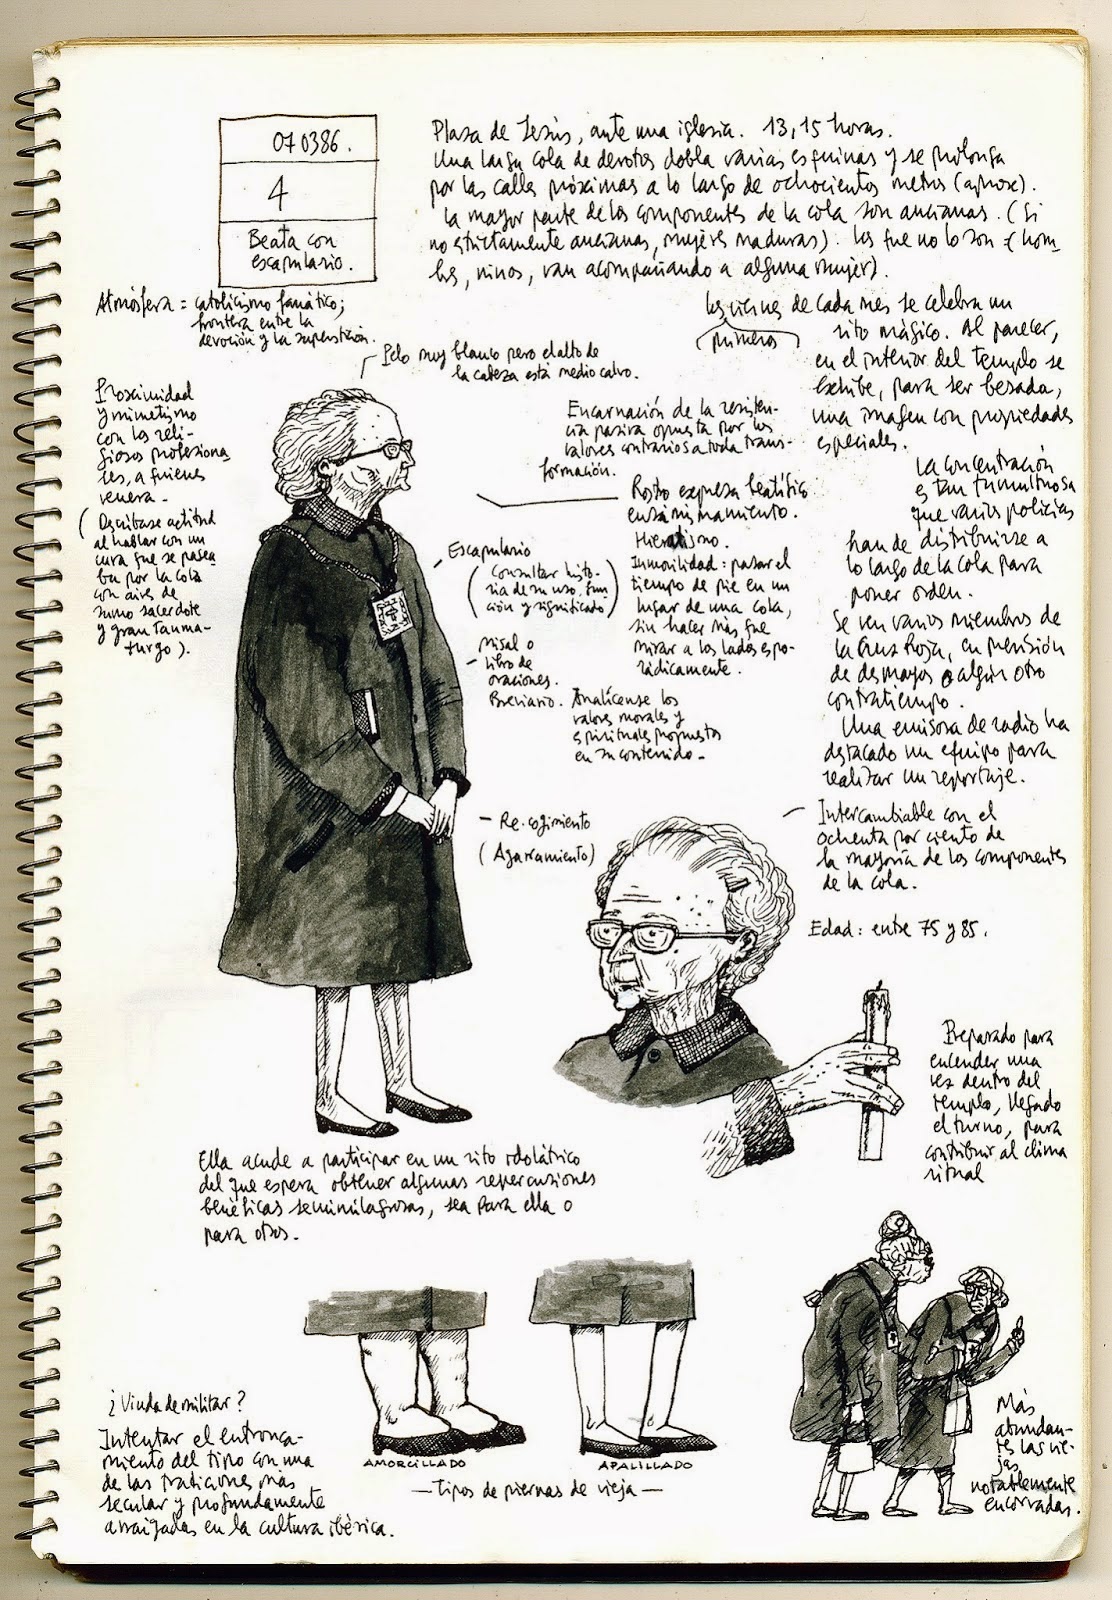 070386.
4
Beata con
escapulario.
Plaza de Jesús, ante una iglesia. 13,15 horas.
Una larga cola de devotos dobla varias esquinas y se prolonga
por las calles próximas a lo largo de ochocientos metros (aprox).
La mayor parte de los componentes de la cola son ancianas. (Si
no estrictamente ancianas, mujeres maduras). Los que no lo son (hom-
bres, niños, van acompañando a alguna mujer).
Los viernes de cada mes se celebra un
primeros
rito mágico. Al parecer,
en el interior del templo se
exhibe, para ser besada,
una imagen con propiedades
especiales.
La concentración
es tan tumultuosa
que varios policías
han de distribuirse a
lo largo de la cola para
poner orden.
Se ven varios miembros de
la Cruz Roja, en previsión
de desmayos o algún otro
contratiempo.
Una emisora de radio ha
destacado un equipo para
realizar un reportaje.
Atmósfera = catolicismo fanático;
frontera entre la
devoción y la superstición.
Pelo muy blanco pero el alto de
la cabeza está medio calvo.
Proximidad
y mimetismo
con los reli-
giosos profesiona-
les, a quienes
venera.
(Descríbase actitud
al hablar con un
cura que se pasea-
ba por la cola
con aires de
sumo sacerdote
y gran tauma-
turgo).
Encarnación de la resisten-
cia pasiva opuesta por los
valores contrarios a toda trans-
formación.
Rostro expresa beatífico
ensimismamiento.
Hieratismo.
Inmovilidad: pasar el
tiempo de pie en un
lugar de una cola,
sin hacer más que
mirar a los lados espo-
rádicamente.
Escapulario
(Consultar histo-
ria de su uso, fun-
ción y significado)
Misal o
libro de
oraciones.
Breviario. Analícense los
valores morales y
espirituales propuestos
en su contenido.
- Re-cogimiento
(Agarramiento)
Intercambiable con el
ochenta por ciento de
la mayoría de los componentes
de la cola.
Edad: entre 75 y 85.
Preparado para
encender una
vez dentro del
templo, llegado
el turno, para
contribuir al clima
ritual
Ella acude a participar en un rito idolátrico
del que espera obtener algunas repercusiones
benéficas semimilagrosas, sea para ella o
para otros.
¿Viuda de militar?
Intentar el entronca-
miento del tipo con una
de las tradiciones más
secular y profundamente
arraigadas en la cultura ibérica.
AMORCILLADO
APALILLADO
— Tipos de piernas de vieja —
Más
abundan-
tes las vie-
jas
notablemente
encorvadas.